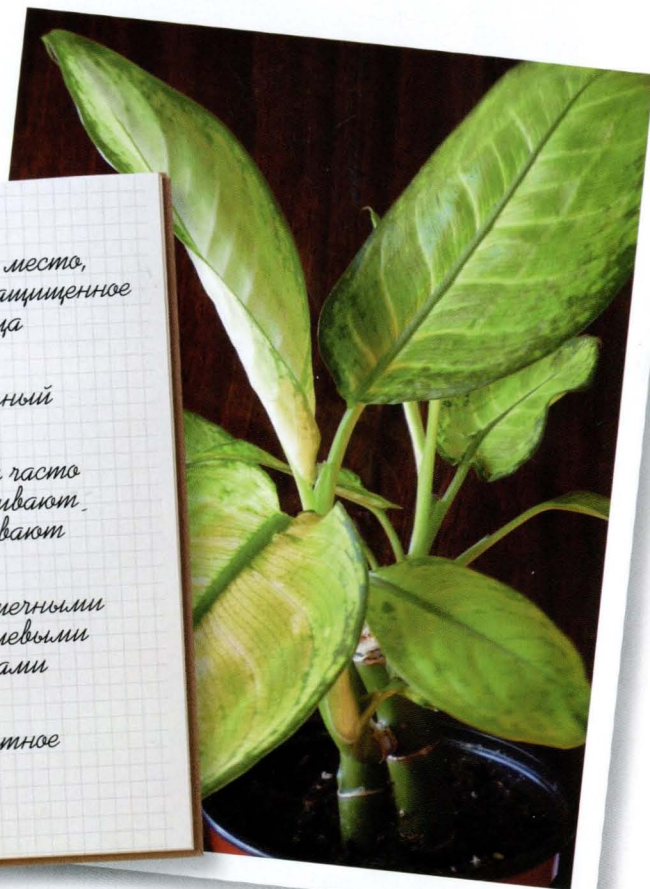 место,
ащищенное
ца
ный
часто
ивают.
вают
мечными
левыми
ами
тное